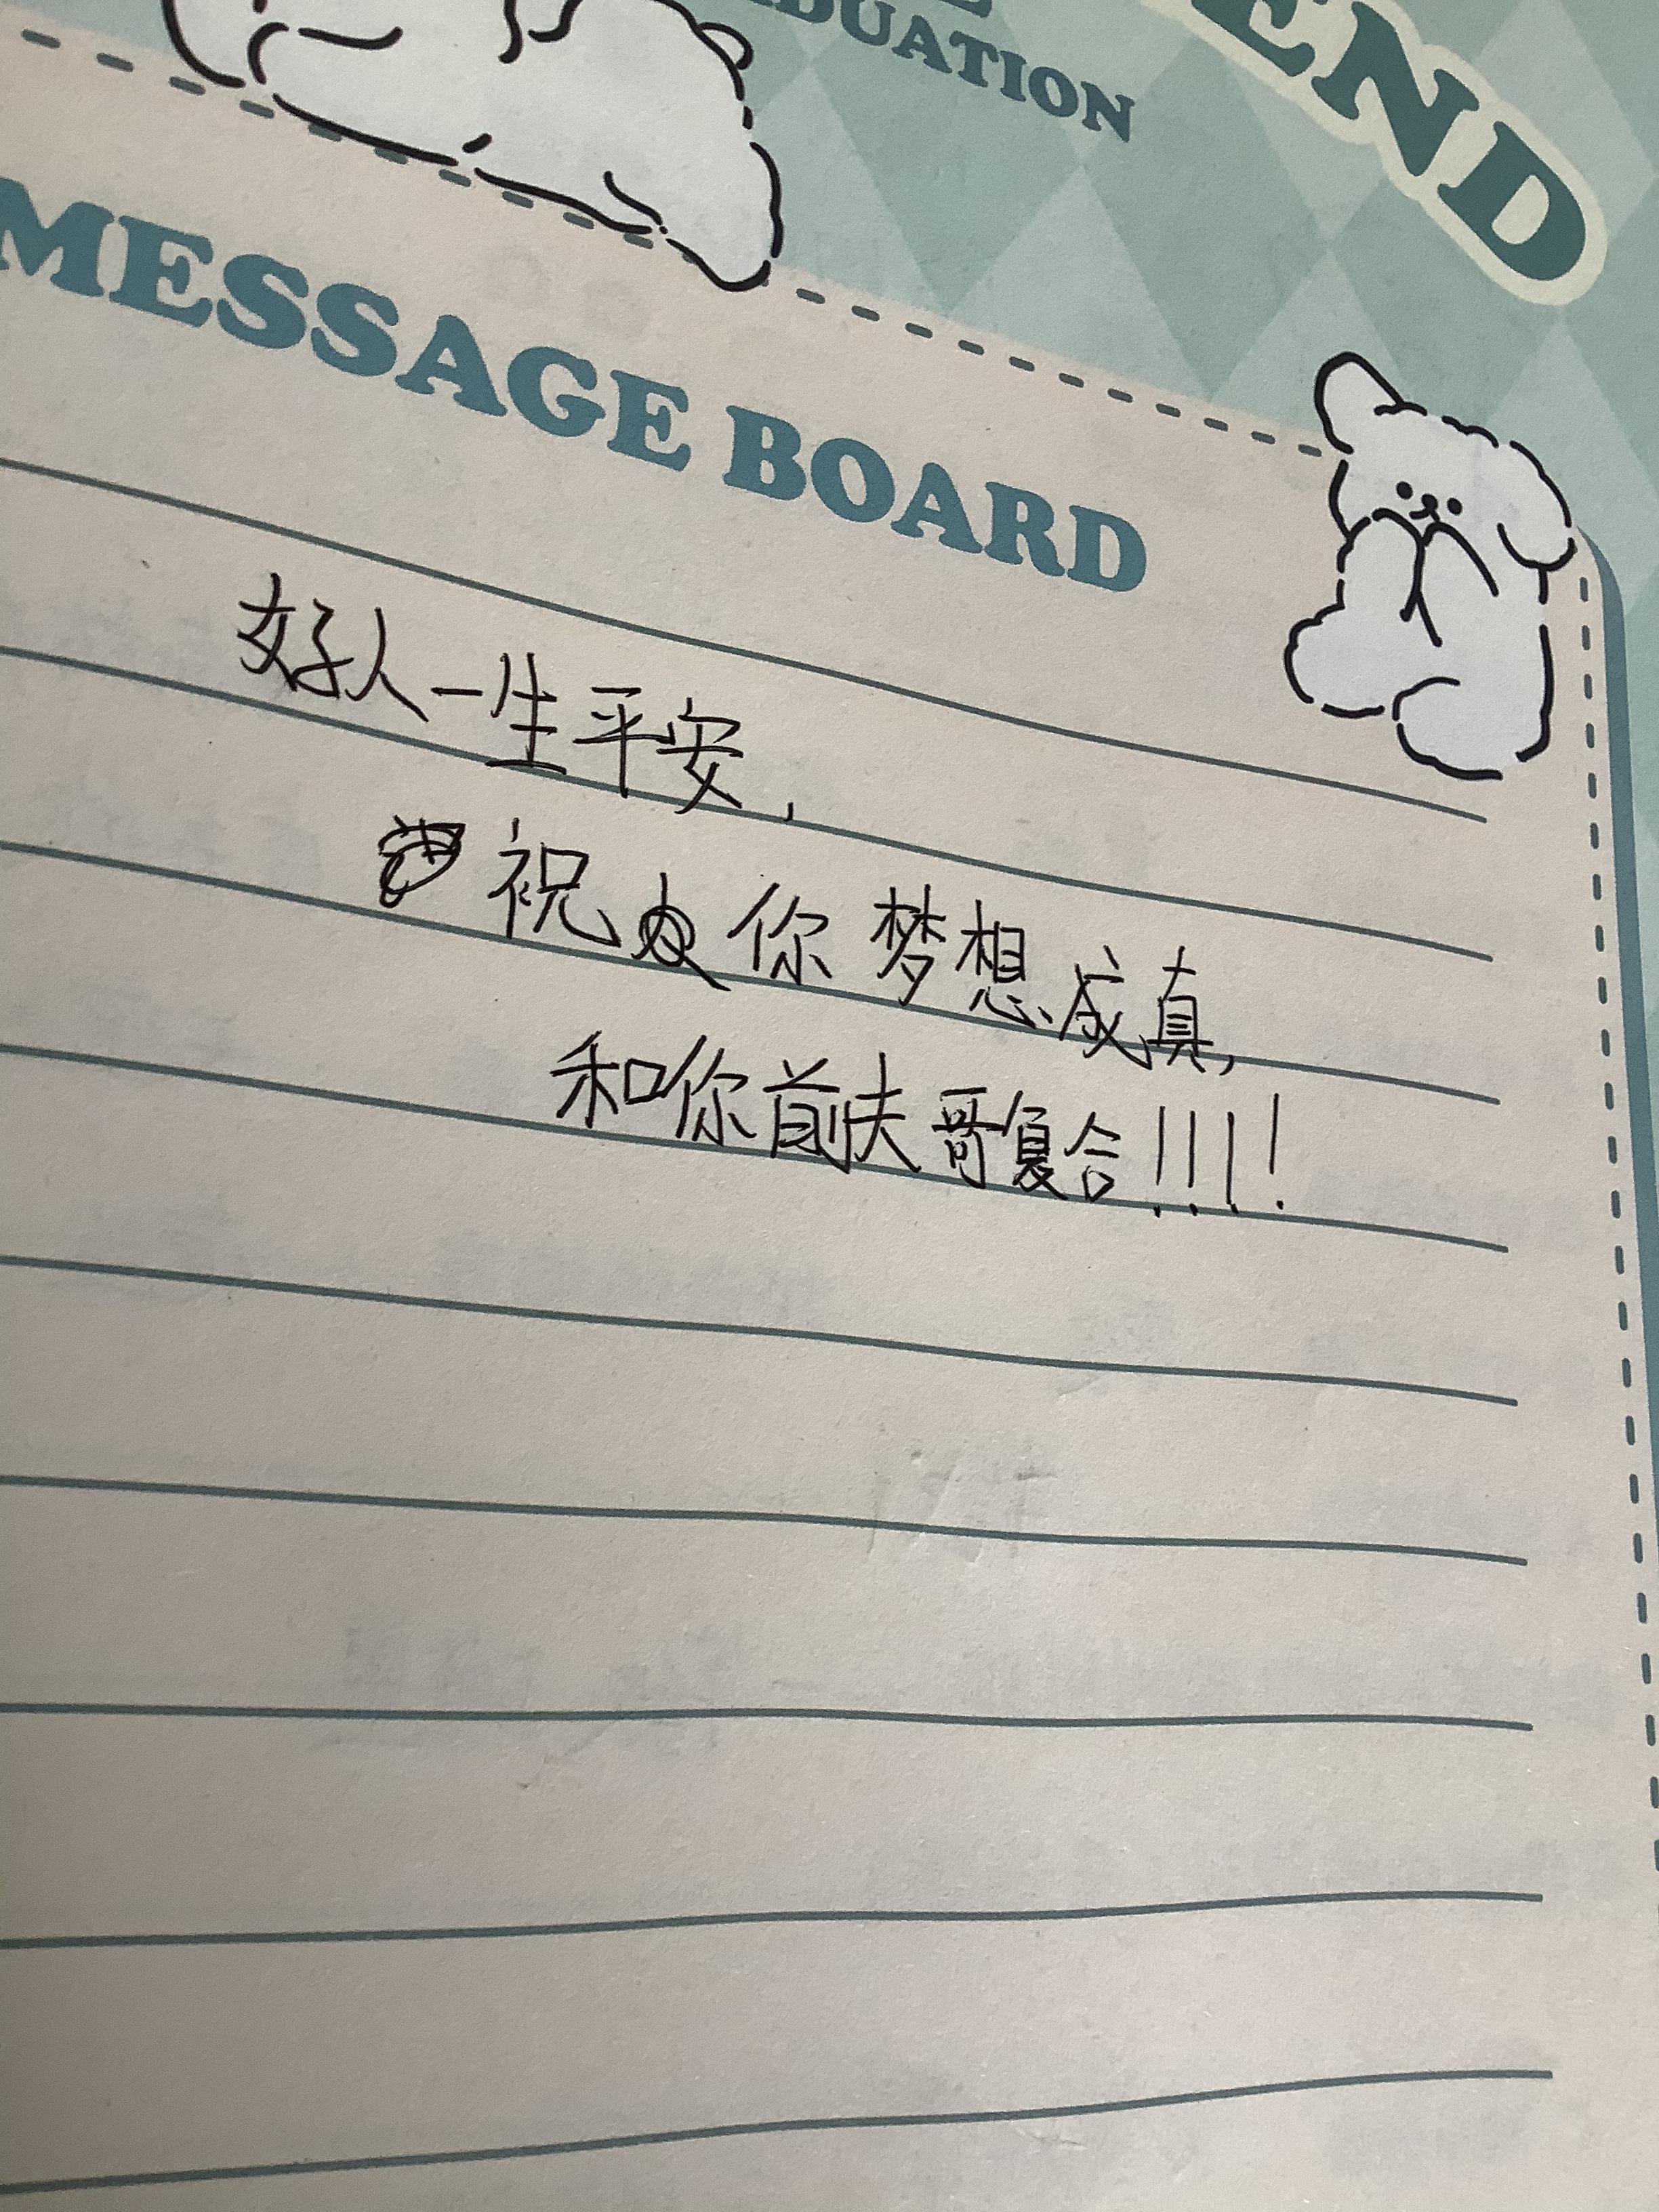 DUATION
END
MESSAGE BOARD
好人一生平安，
祝你梦想成真，
和你前夫哥复合！！！！